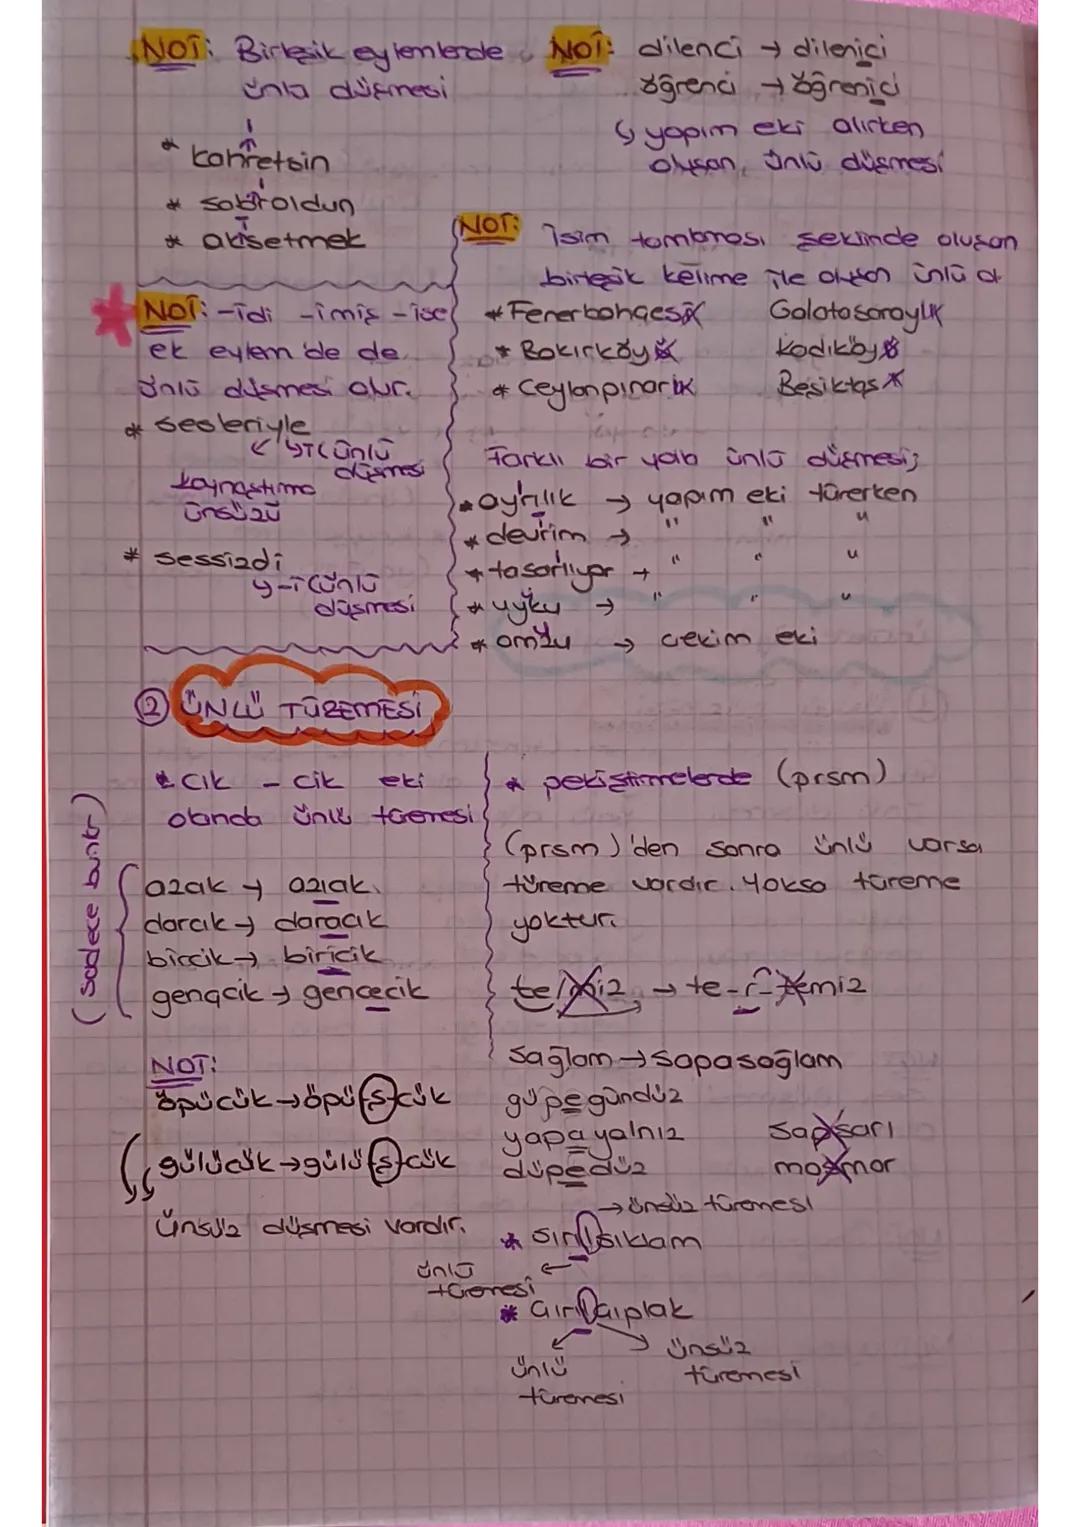 NOT: Birleşik eylemlerde
ünlü düşmesi
ı
* kahretsin
ı
* sabroldun
i
* aksetmek
NOT: dilenci → dilenici
öğrenci → öğrenici
↳ yapım eki alırken
oluşan, ünlü düşmesi
NOT: İsim tamlaması şeklinde oluşan
birleşik kelime ile oluşan ünlü d
* Fenerbahçesi
Galatasaraylı
* Bakırköyü
Kadıköyü
* Ceylanpınarı
Beşiktaş
NOT: -idi -imiş -ise
ek eylem'de de
ünlü düşmesi olur.
* sesleriyle
↳ i (ünlü
düşmesi
kaynaştırma
ünsüzü
* sessizdi
↳ -i (ünlü
düşmesi
Farklı bir yolla ünlü düşmesi;
* ayrılık → yapım eki türerken
* devrim → " " "
* tasarlıyor → " " "
* uyku → " " "
* omzu → çekim eki
② ÜNLÜ TÜREMESİ
* cık - cik eki
olanda ünlü türemesi
(sadece bunlar)
azcık → azıcık
darcık → daracık
bircik → biricik
gençcik → gencecik
NOT:
öpücük → öpü(ş)cük
gülücük → gülü(ş)cük
ünsüz düşmesi vardır.
* pekiştirmelerde (prsm)
(prsm)'den sonra ünlü varsa
türeme vardır. Yoksa türeme
yoktur.
te/miz → te-r-temiz
sağlam → sapasağlam
güpegündüz
yapayalnız
sapsarı
düpedüz
mosmor
→ ünsüz türemesi
* sırılsıklam
ünlü
türemesi
* çırılçıplak
ünlü
türemesi
ünsüz
türemesi